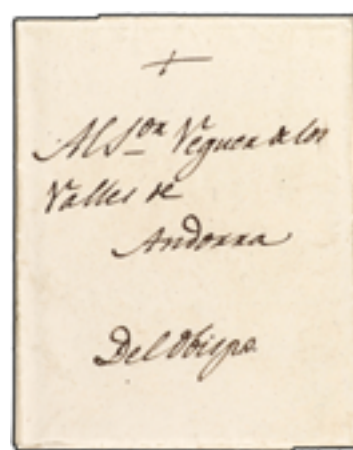 Al S.or Veguer de los
Valles de
Andorra
Del Obispo.